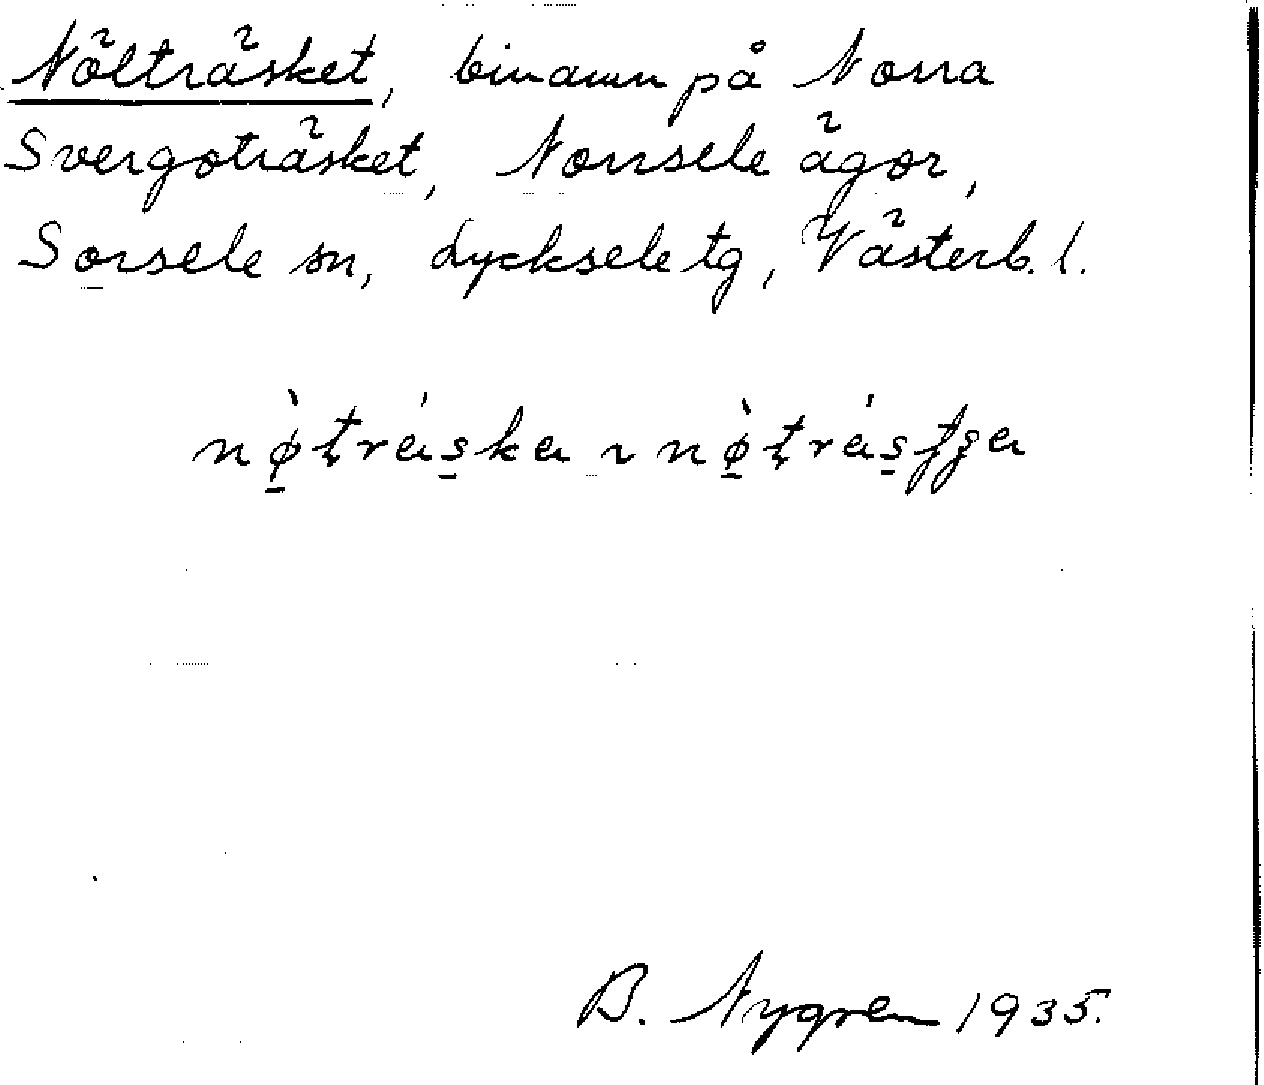 Nölträsket, binamn på Norra
Svergoträsket, Norrsele ägor,
Sorsele sn, Lycksele tg, Västerb. l.
nø̀träska ~ nø̀trästʃa
B. Nygren 1935.